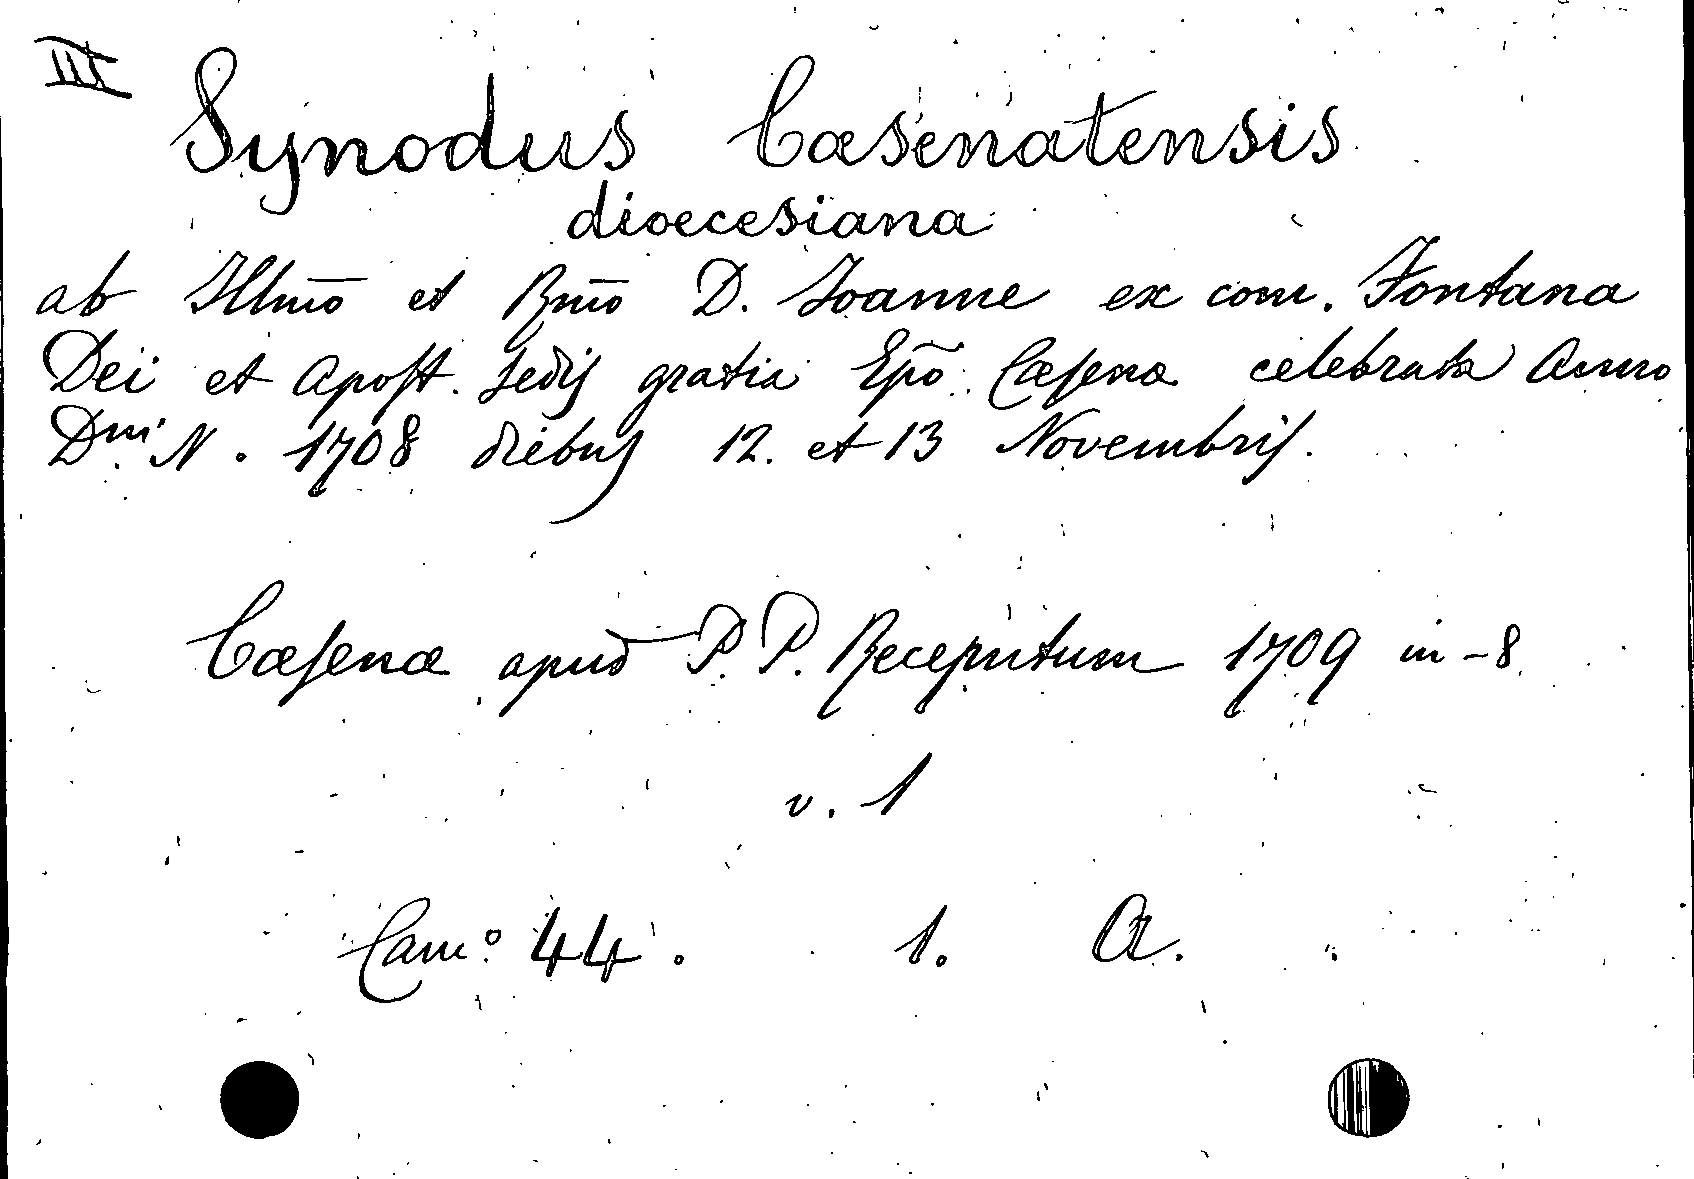 III
Synodus Cæsenatensis
dioecesiana
ab Illmō et Rmō D. Joanne ex com. Fontana
Dei et Apost. Sedis gratia Epō. Cæsenæ celebrata Anno
Dni N. 1708 diebus 12. et 13 Novembris.
Cæsenæ apud P. P. Receputum 1709 in-8.
v. 1
Camº 44. 1. A.